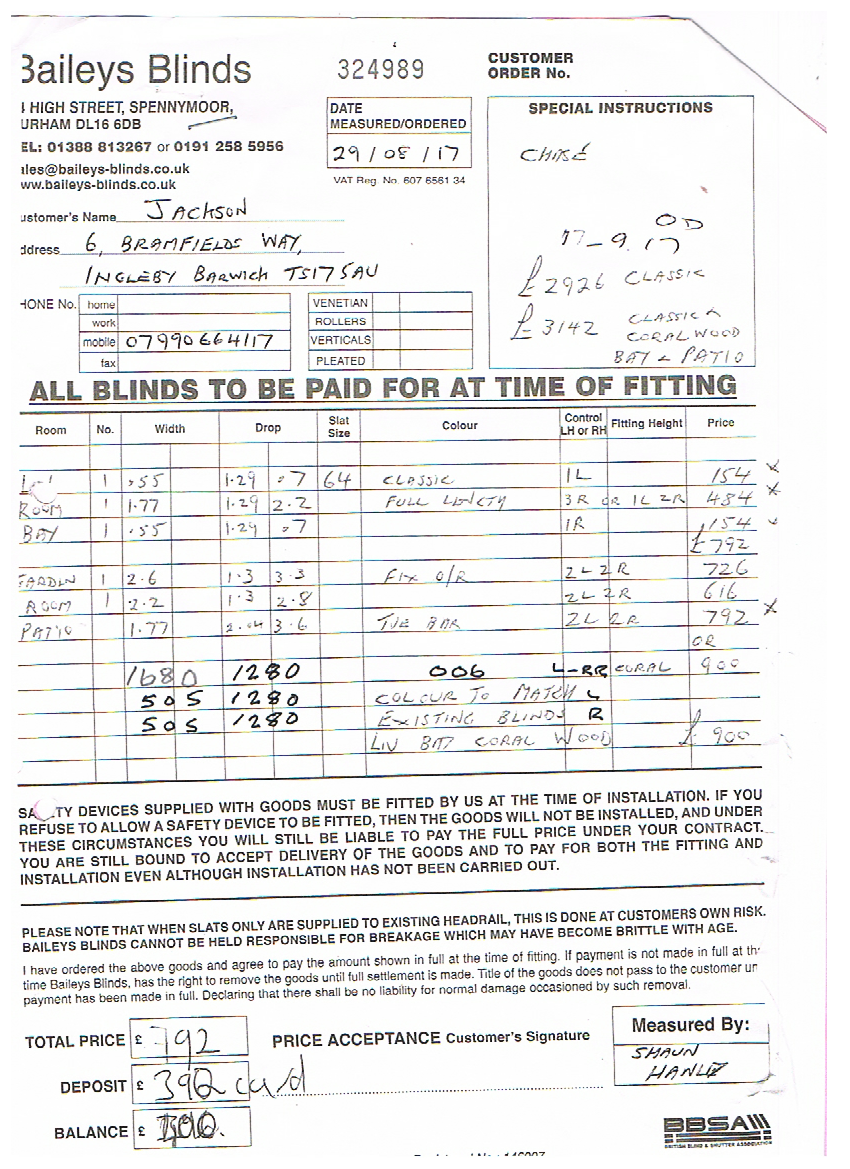 Baileys Blinds
324989
CUSTOMER
ORDER No.
HIGH STREET, SPENNYMOOR,
URHAM DL16 6DB
EL: 01388 813267 or 0191 258 5956
ales@baileys-blinds.co.uk
ww.baileys-blinds.co.uk
DATE
MEASURED/ORDERED
29/08/17
VAT Reg. No. 607 6561 34
SPECIAL INSTRUCTIONS
OD
17-9.17
£2926 CLASSIC
£3142 CLASSIC &
CORALWOOD
BAY & PATIO
ustomer's Name JACKSON
ddress 6, BRAMFIELDS WAY,
INGLEBY BARWICH TS175AU
HONE No. home
work
mobile 07990664117
fax
VENETIAN
ROLLERS
VERTICALS
PLEATED
ALL BLINDS TO BE PAID FOR AT TIME OF FITTING
Room No. Width Drop Slat Size Colour Control LH or RH Fitting Height Price
1 .55 1.29 .7 64 CLASSIC 1L 154 x
ROOM 1 1.77 1.29 2.2 FULL LENGTH 3R OR 1L 2R 484 x
BAY 1 .55 1.29 .7 1R 154
£792
GARDEN 1 2.6 1.3 3.3 FIX O/R 2L 2R 726
ROOM 1 2.2 1.3 2.8 2L 2R 616
PATIO 1.77 2.04 3.6 2L 2R 792 x
OR
1680 1280 006 L-RR CORAL 900
505 1280 COLOUR TO MATCH L
505 1280 EXISTING BLINDS R
LIV BAY CORAL WOOD £900
SA TY DEVICES SUPPLIED WITH GOODS MUST BE FITTED BY US AT THE TIME OF INSTALLATION. IF YOU
REFUSE TO ALLOW A SAFETY DEVICE TO BE FITTED, THEN THE GOODS WILL NOT BE INSTALLED, AND UNDER
THESE CIRCUMSTANCES YOU WILL STILL BE LIABLE TO PAY THE FULL PRICE UNDER YOUR CONTRACT.
YOU ARE STILL BOUND TO ACCEPT DELIVERY OF THE GOODS AND TO PAY FOR BOTH THE FITTING AND
INSTALLATION EVEN ALTHOUGH INSTALLATION HAS NOT BEEN CARRIED OUT.
PLEASE NOTE THAT WHEN SLATS ONLY ARE SUPPLIED TO EXISTING HEADRAIL, THIS IS DONE AT CUSTOMERS OWN RISK.
BAILEYS BLINDS CANNOT BE HELD RESPONSIBLE FOR BREAKAGE WHICH MAY HAVE BECOME BRITTLE WITH AGE.
I have ordered the above goods and agree to pay the amount shown in full at the time of fitting. If payment is not made in full at th
time Baileys Blinds, has the right to remove the goods until full settlement is made. Title of the goods does not pass to the customer un
payment has been made in full. Declaring that there shall be no liability for normal damage occasioned by such removal.
TOTAL PRICE £ 792
PRICE ACCEPTANCE Customer's Signature
Measured By:
SHAUN
DEPOSIT £ 392 card
BALANCE £
BBSA
BRITISH BLIND & SHUTTER ASSOCIATION